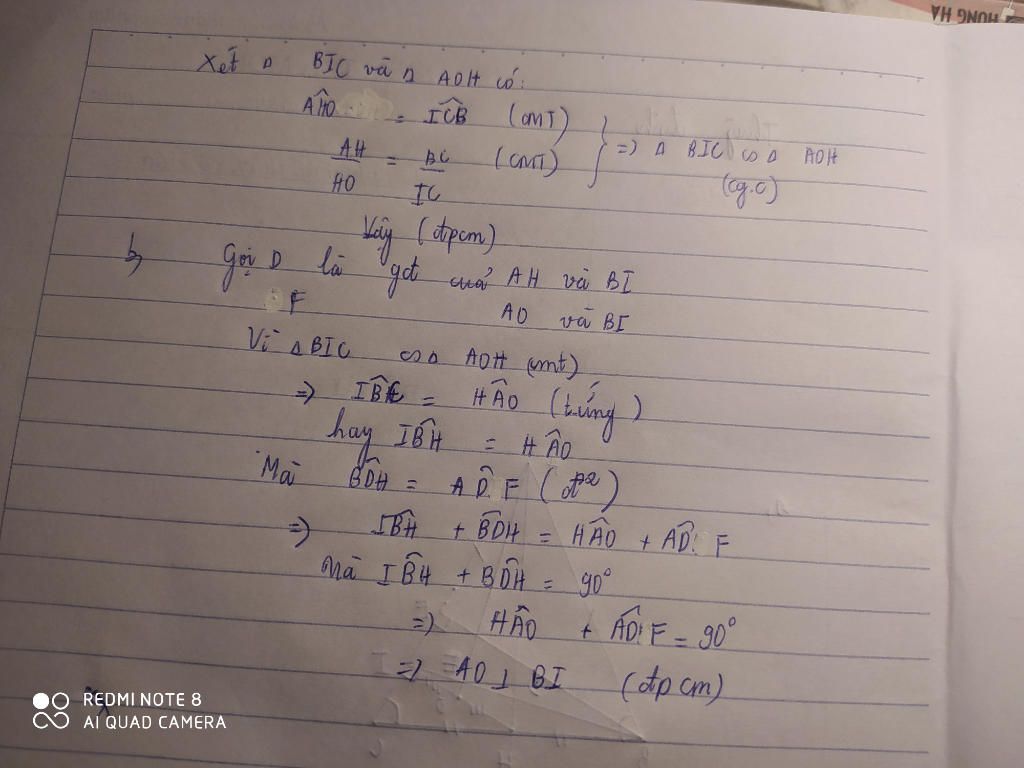 HONG HA
Xét Δ BIC và Δ AOH có:
AĤO = IĈB (cmt)
AH/HO = BC/IC (cmt)
} => Δ BIC ∽ Δ AOH
(cg.c)
Vậy (đpcm)
b, Gọi D là gđ cuả AH và BI
F AO và BI
Vì Δ BIC ∽ Δ AOH (cmt)
=> IB̂C = HÂO (tứng)
hay IB̂H = HÂO
Mà BD̂H = AD̂F (đ²)
=> IB̂H + BD̂H = HÂO + AD̂F
Mà IB̂H + BD̂H = 90°
=> HÂO + AD̂F = 90°
=> AO ⊥ BI (đpcm)
REDMI NOTE 8
AI QUAD CAMERA